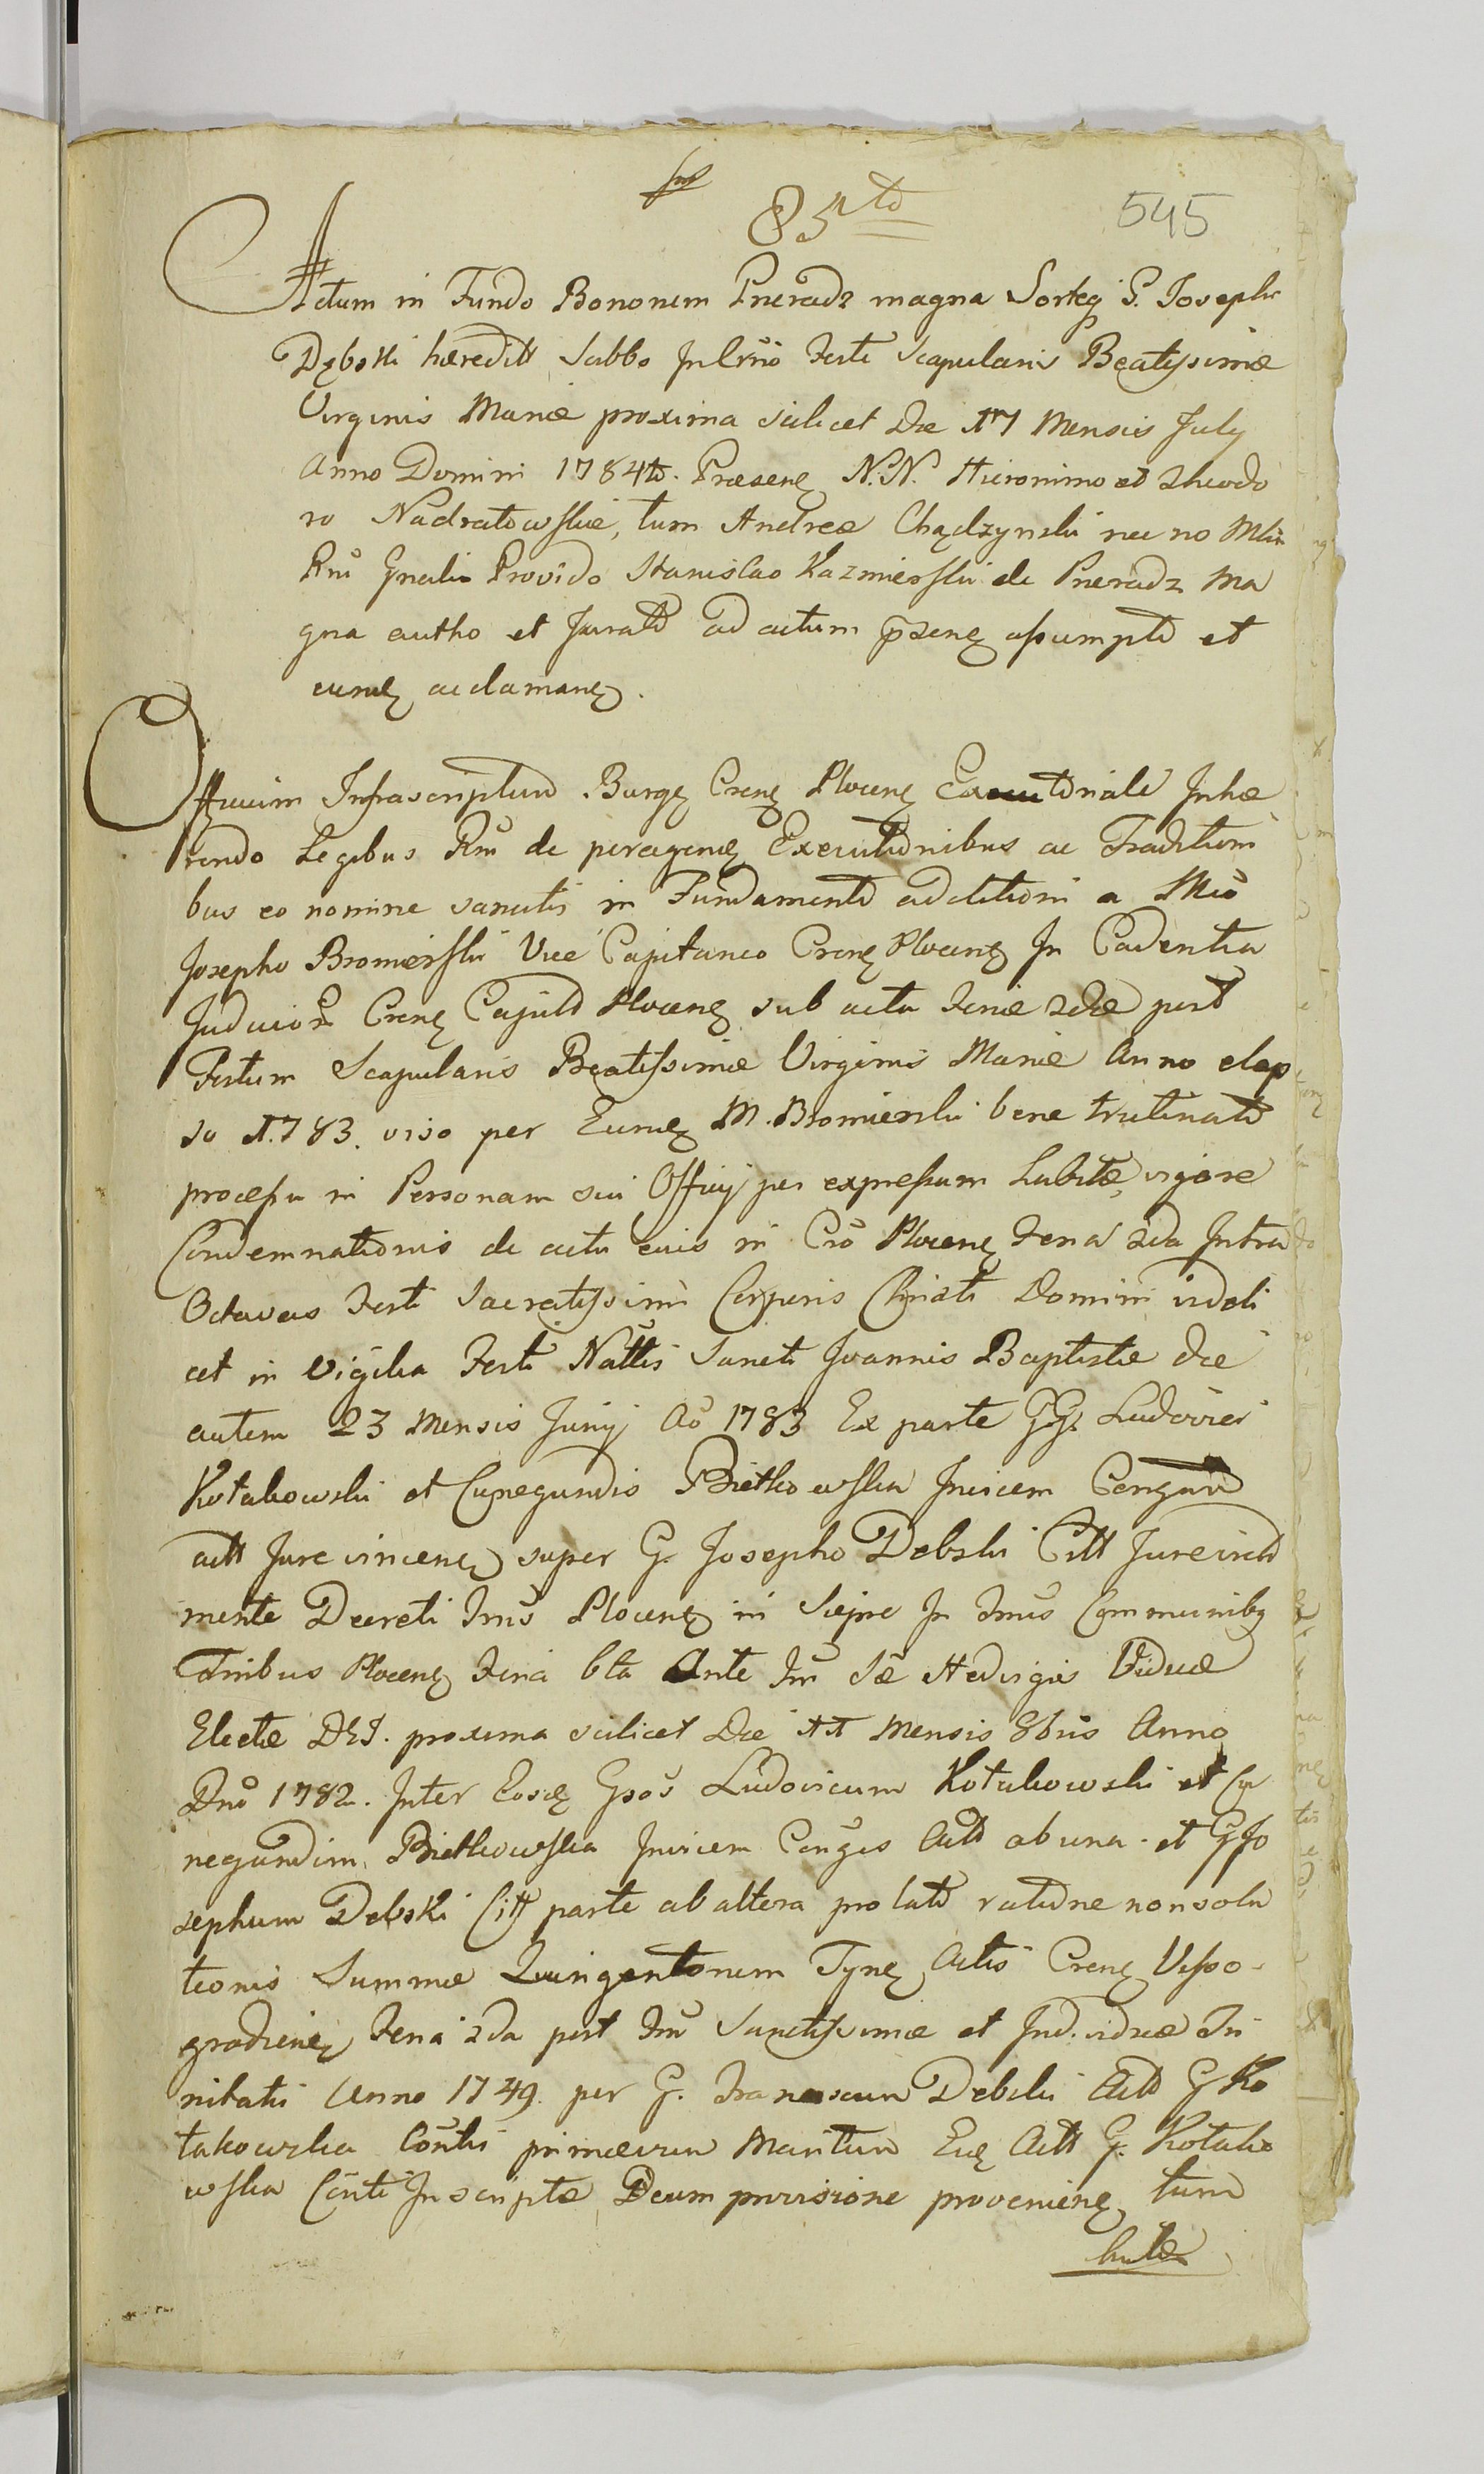 85to
545
Actum in Fundo Bonorum Pneradz magna Sortis G. Josephi
Dębski hæredit Sabbo In Crno Festi Scapularis Beatissimæ
Virginis Mariæ proxima scilicet Die 17 Mensis July
Anno Domini 1784to. Præsene N.N. Hieronimo et Theodo
ro Nadratowskie, tum Andreæ Chądzynski nec no Min
Rni Gnali Provido Stanislao Kazmierski de Pneradz Ma
gna autho et Jurato ad actum przene assumpto et
eund acclamane.
Officium Infrascriptum Burge Crene Plocene Executoriale Inhæ
rendo Legibus Rni de peragend Executionibus ac Tradition
bus eo nomine sancitis in Fundamento addictioni a Mco
Josepho Bromierski Vice Capitaneo Crene Plocene In Cadentia
Judicior Crene Capitl Plocene sub actu Feriæ 2dæ post
Festum Scapularis Beatissimæ Virginis Mariæ Anno elap
so 1.783. viso per Eund M. Bromierski bene trutinato
processu in Personam sui Officij per expressum Lubitæ, vigore
Condemnationis de actu eius in Cro Plocene Feria 2da Intra
Octavas Festi Sacratissimi Corporis Christi Domini videli
cet in Vigilia Festi Nattis Sancti Joannis Baptistæ die
autem 23 Mensis Junij Ao 1783 Ex parte GG. Ludovici
Kotakowski et Cunegundis Bietkowska Invicem Congum
actt Jure vincene super G. Josepho Debski Citt Jurevicto
mente Decreti Trnus Plocene in Sieprc In Trnus Communibg
Trnibus Plocene Feria 6ta Ante Fm Sæ Hedvigis Viduæ
Electæ DEI. proxima scilicet Die 11 Mensis 8bris Anno
Dno 1782. Inter Eosd Gsos Ludovicum Kotakowski et Cu
negundim Bietkowska Invicem Conges Actt ab una. et G Jo
sephum Debski Citt parte ab altera prolato ratione non solu
tionis Summæ Quingentorum Tyne Actis Crene Visso-
grodiene Feria 2da post Fm Sanctissimæ et Individuæ Tri
nitatis Anno 1749. per G. Franciscum Debski Actt G Ko
takowska Conlis primævum Maritum Eid Actt G. Kotako
wska Conti Inscriptæ, Deum provisione proveniene, tum